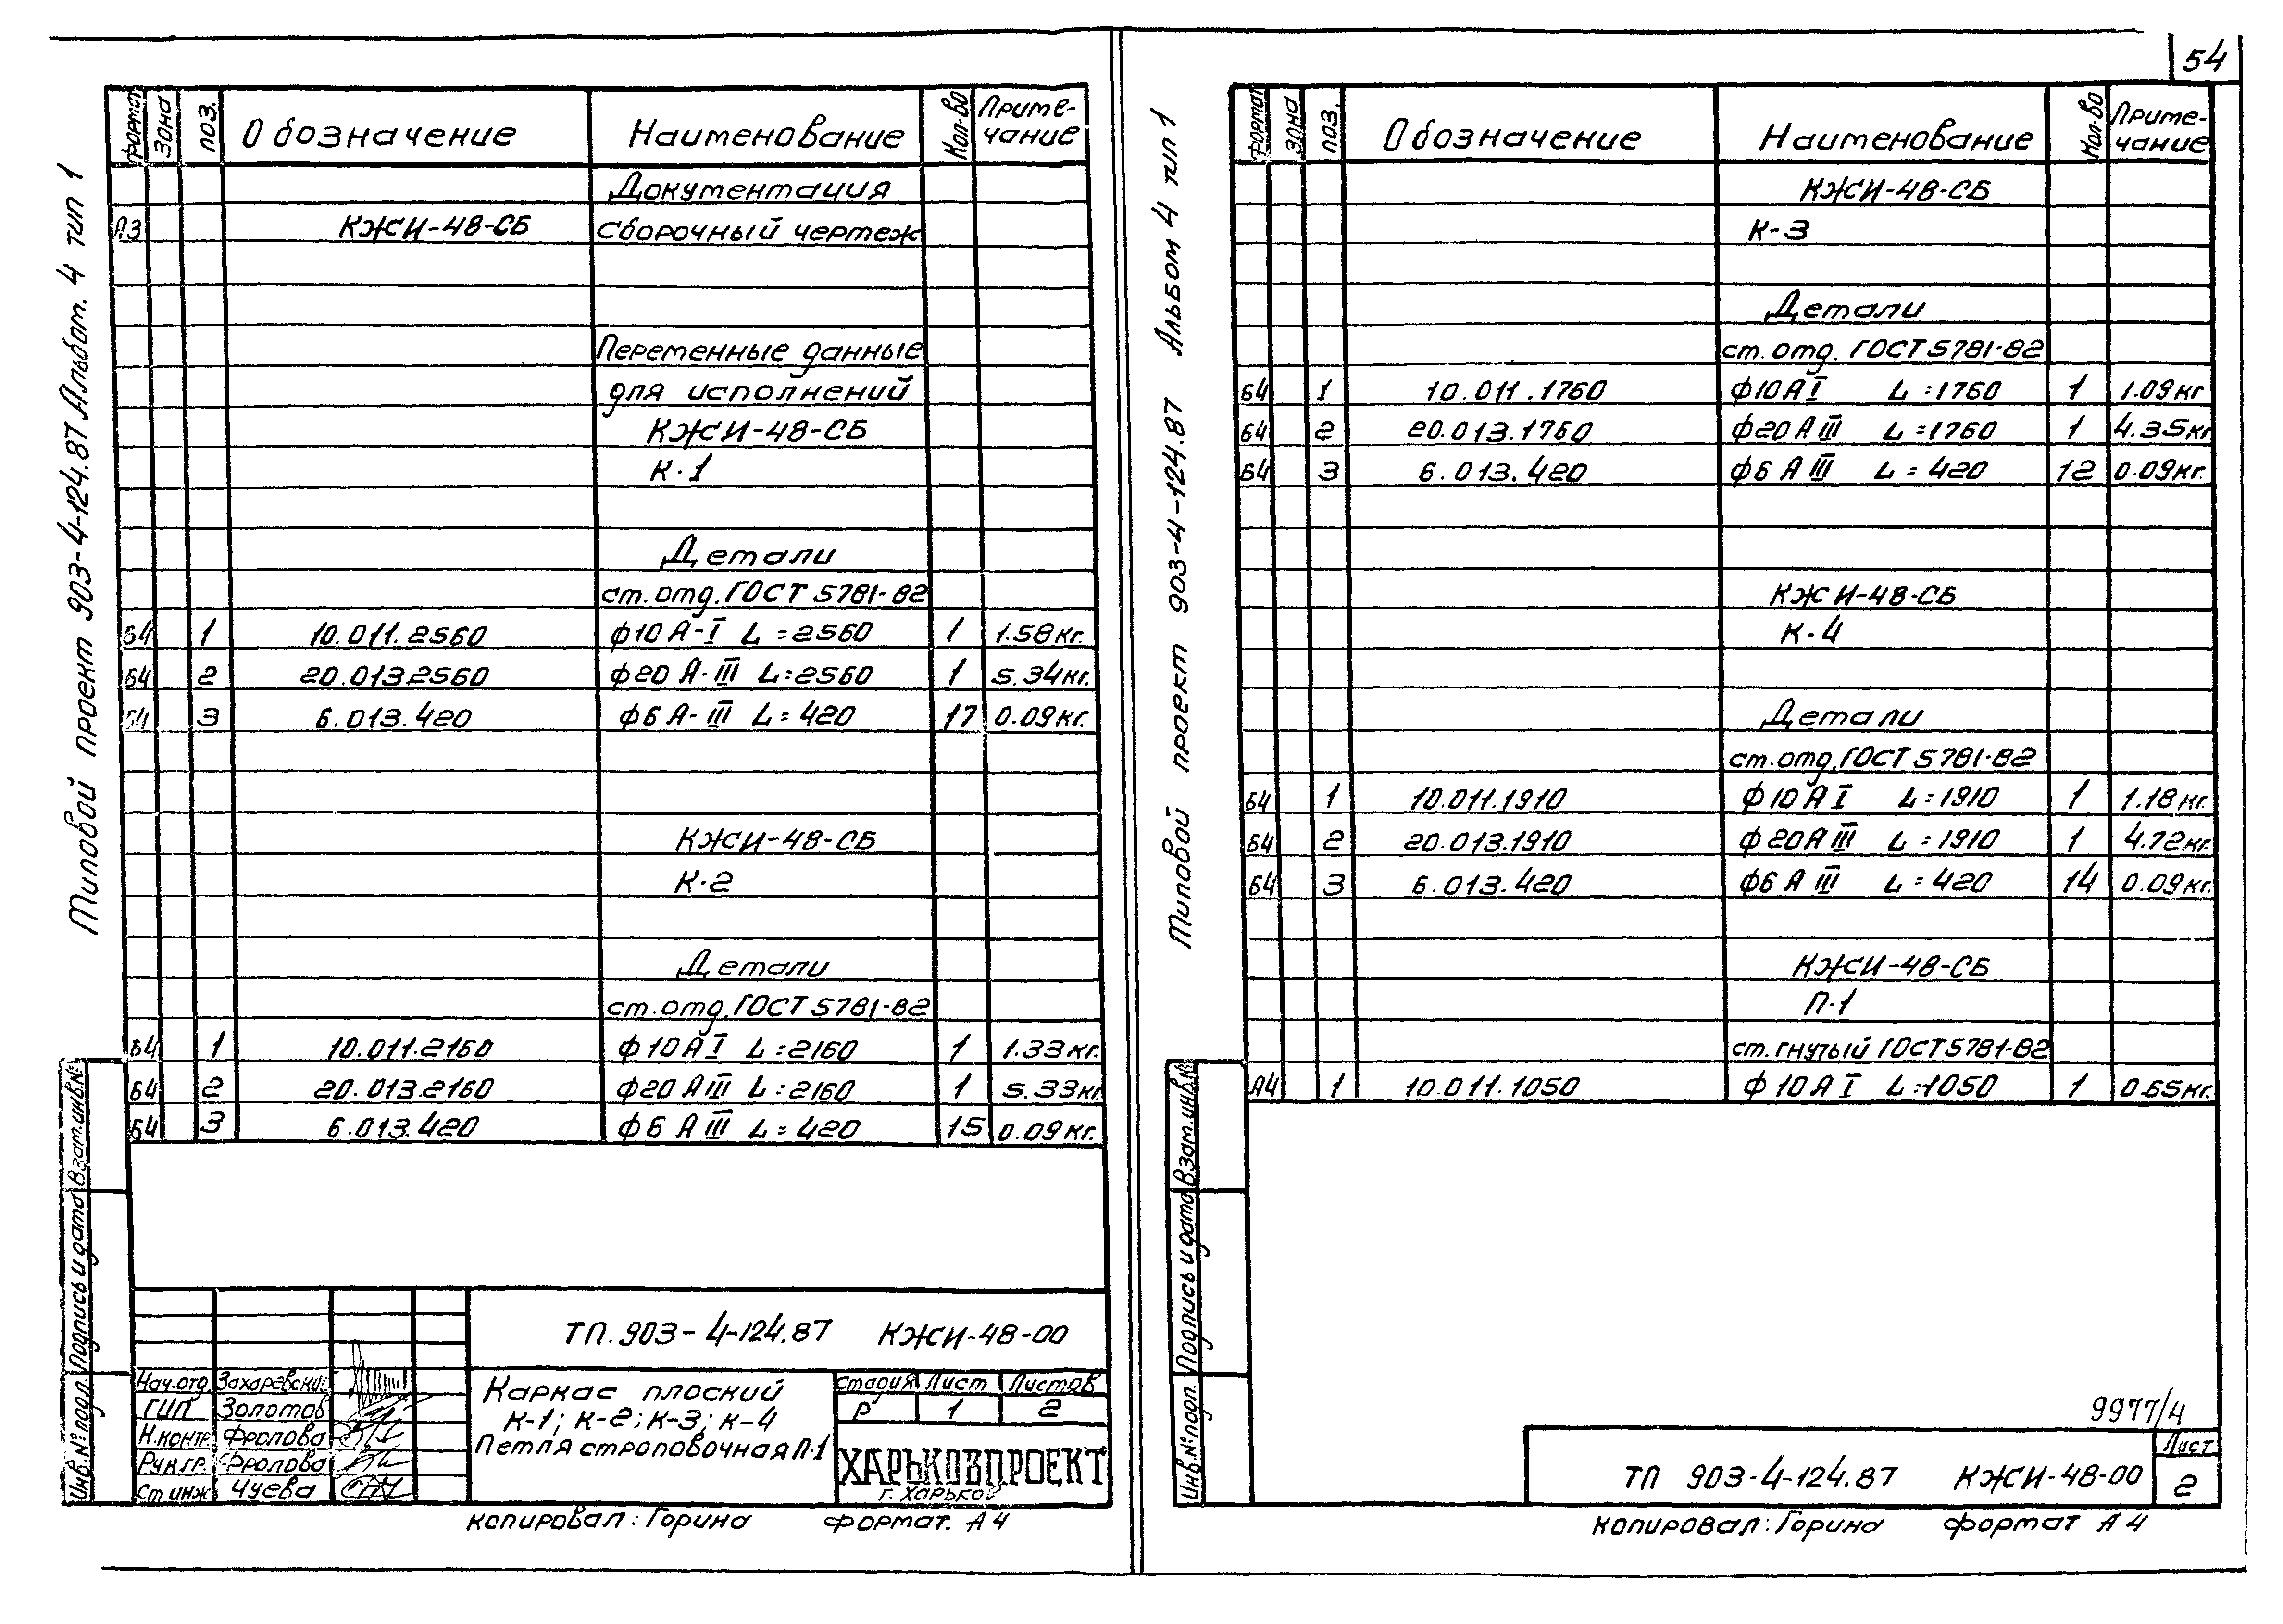 54
Типовой проект 903-4-124.87 Альбом. 4 тип 1
Формат Зона Поз. Обозначение Наименование Кол-во Приме-чание
Документация
А3 КЖСИ-48-СБ сборочный чертеж
Переменные данные
для исполнений
КЖСИ-48-СБ
К-1
Детали
ст. отд. ГОСТ 5781-82
Б4 1 10.011.2560 ф10 А-I L=2560 1 1.58кг.
Б4 2 20.013.2560 ф20 А-III L=2560 1 5.34кг.
Б4 3 6.013.420 ф6 А-III L=420 17 0.09кг.
КЖСИ-48-СБ
К-2
Детали
ст. отд. ГОСТ 5781-82
Б4 1 10.011.2160 ф10 А I L=2160 1 1.33кг.
Б4 2 20.013.2160 ф20 А III L=2160 1 5.33кг.
Б4 3 6.013.420 ф6 А III L=420 15 0.09кг.
Инв.№подл. Подпись и дата Взам.инв.№
ТП.903-4-124.87 КЖСИ-48-00
Нач.отд. Захаревский
ГИП Золотов
Н.контр. Фролова
Рук.гр. Фролова
Ст инж Чуева
Каркас плоский
К-1; К-2; К-3; К-4
Петля строповочная П-1
стадия Лист Листов
Р 1 2
ХАРЬКОВПРОЕКТ
г. Харьков
копировал: Горина формат. А4
Типовой проект 903-4-124.87 Альбом 4 тип 1
Формат Зона Поз. Обозначение Наименование Кол-во Приме-чание
КЖСИ-48-СБ
К-3
Детали
ст. отд. ГОСТ 5781-82
Б4 1 10.011.1760 ф10 А I L=1760 1 1.09кг
Б4 2 20.013.1760 ф20 А III L=1760 1 4.35кг
Б4 3 6.013.420 ф6 А III L=420 12 0.09кг.
КЖСИ-48-СБ
К-4
Детали
ст. отд. ГОСТ 5781-82
Б4 1 10.011.1910 ф10 А I L=1910 1 1.18кг.
Б4 2 20.013.1910 ф20 А III L=1910 1 4.72кг.
Б4 3 6.013.420 ф6 А III L=420 14 0.09кг.
КЖСИ-48-СБ
П-1
ст. гнутый ГОСТ 5781-82
А4 1 10.011.1050 ф10 А I L=1050 1 0.65кг.
Инв.№подл. Подпись и дата Взам.инв.№
9977/4
ТП 903-4-124.87 КЖСИ-48-00
Лист
2
копировал: Горина формат А4